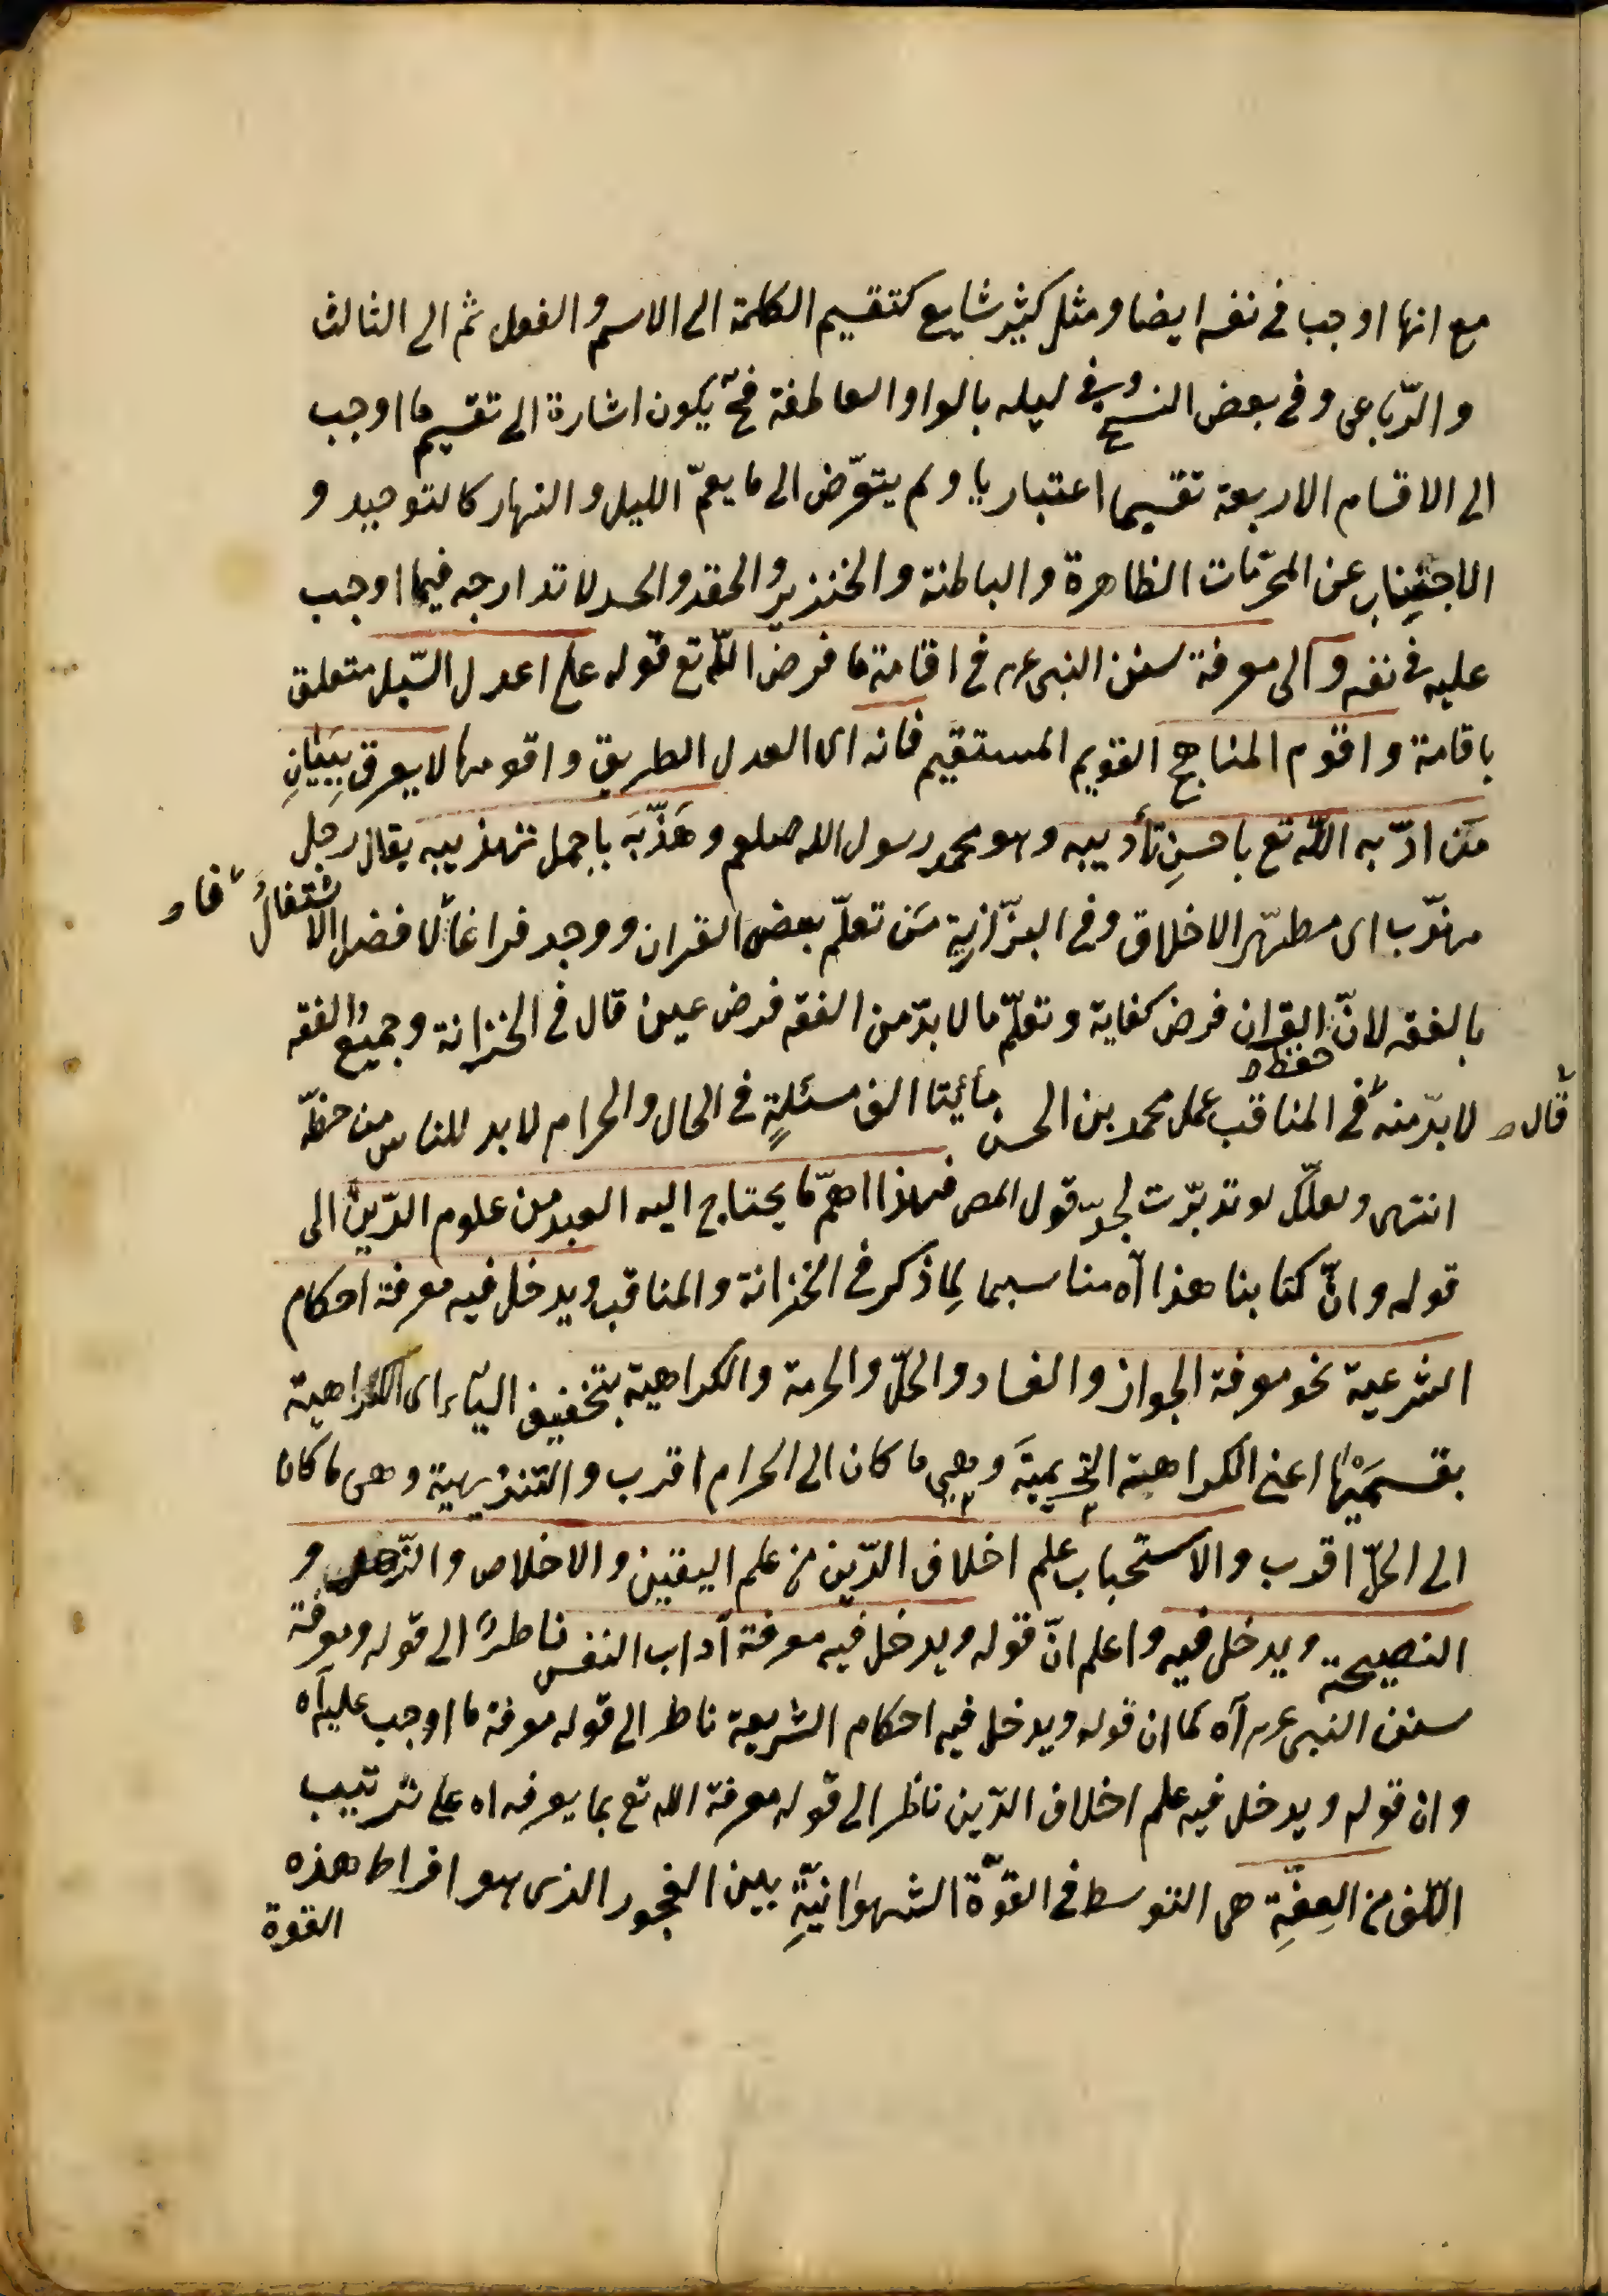 مع انها اوجب فى نفسه ايضا ومثله كثير شايع كتقسيم الكلمة الى الاسم والفعل ثم الى الثالث
والرّباعى وفى بعض النسخ وفى ليله بالواو العاطفة فحّ يكون اشارة الى تقسيم ما اوجب
الى الاقسام الاربعة تقسيما اعتباريا ولم يتعرّض الى ما يعمّ الليل والنهار كالتوحيد و
الاجتناب عن المحرّمات الظاهرة والباطنة والخنزير والحقد والحسد لاندارجه فيما اوجب
عليه فى نفسه والى معرفة سنن النبى عم فى اقامة ما فرض اللّه تع قوله على اعدل السّبل متعلق
باقامة واقوم المناهج القويم المستقيم فانه اى العدل الطريق واقومها لا يعرف بِبَيَانِ
مَن ادّبه اللّه تع باحسنِ تأديبه وهو محمد رسول الله صلعم وهَذّبَه باجمل تهذيبه يقال رجل
مهذّب اى مطهّر الاخلاق وفى البزّازية مَن تعلّم بعض القران ووجد فراغا فالافضل الاشتغالُ
بالفقه لانّ حفظ القران فرض كفاية وتعلّم ما لا بدّ من الفقه فرض عين قال فى الخزانة وجميع الفقه
لا بدّ منه قال فى المناقب عمل محمد بن الحسن مأيتا الف مسئلةٍ فى الحال والحرام لا بد للناس من حفظه
انتهى ولعلّك لو تدبّرت لجدّ قول المص فهذا اهمّ ما يحتاج اليه العبد من علوم الدّين الى
قوله وانّ كتابنا هذا آه مناسبما لِما ذكر فى الخزانة والمناقب ويدخل فيه معرفة احكام
الشرعية نحو معرفة الجواز والفساد والحلّ والحرمة والكراهية بتخفيف الياء اى الكراهية
بقسمَيْها اعنى الكراهية التحريميّة وهى ما كان الى الحرام اقرب والتنزيهية وهى ما كان
الى الحلّ اقرب والاستحباب علم اخلاق الدّين من علم اليقين والاخلاص والزّهد و
النصيحة ويدخل فيه واعلم انّ قوله ويدخل فيه معرفة آداب النفس ناظر الى قوله ومعرفة
سنن النبى عم آه كما ان قوله ويدخل فيه احكام الشريعة ناظر الى قوله معرفة ما اوجب عليه آه
وان قوله ويدخل فيه علم اخلاق الدّين ناظر الى قوله معرفة الله تع بما يعرفه اه على ترتيب
اللّف من العِفّةِ هى التوسط فى القوّة الشهوانيّةِ بين الفجور الذى هو افراط هذه
القوة